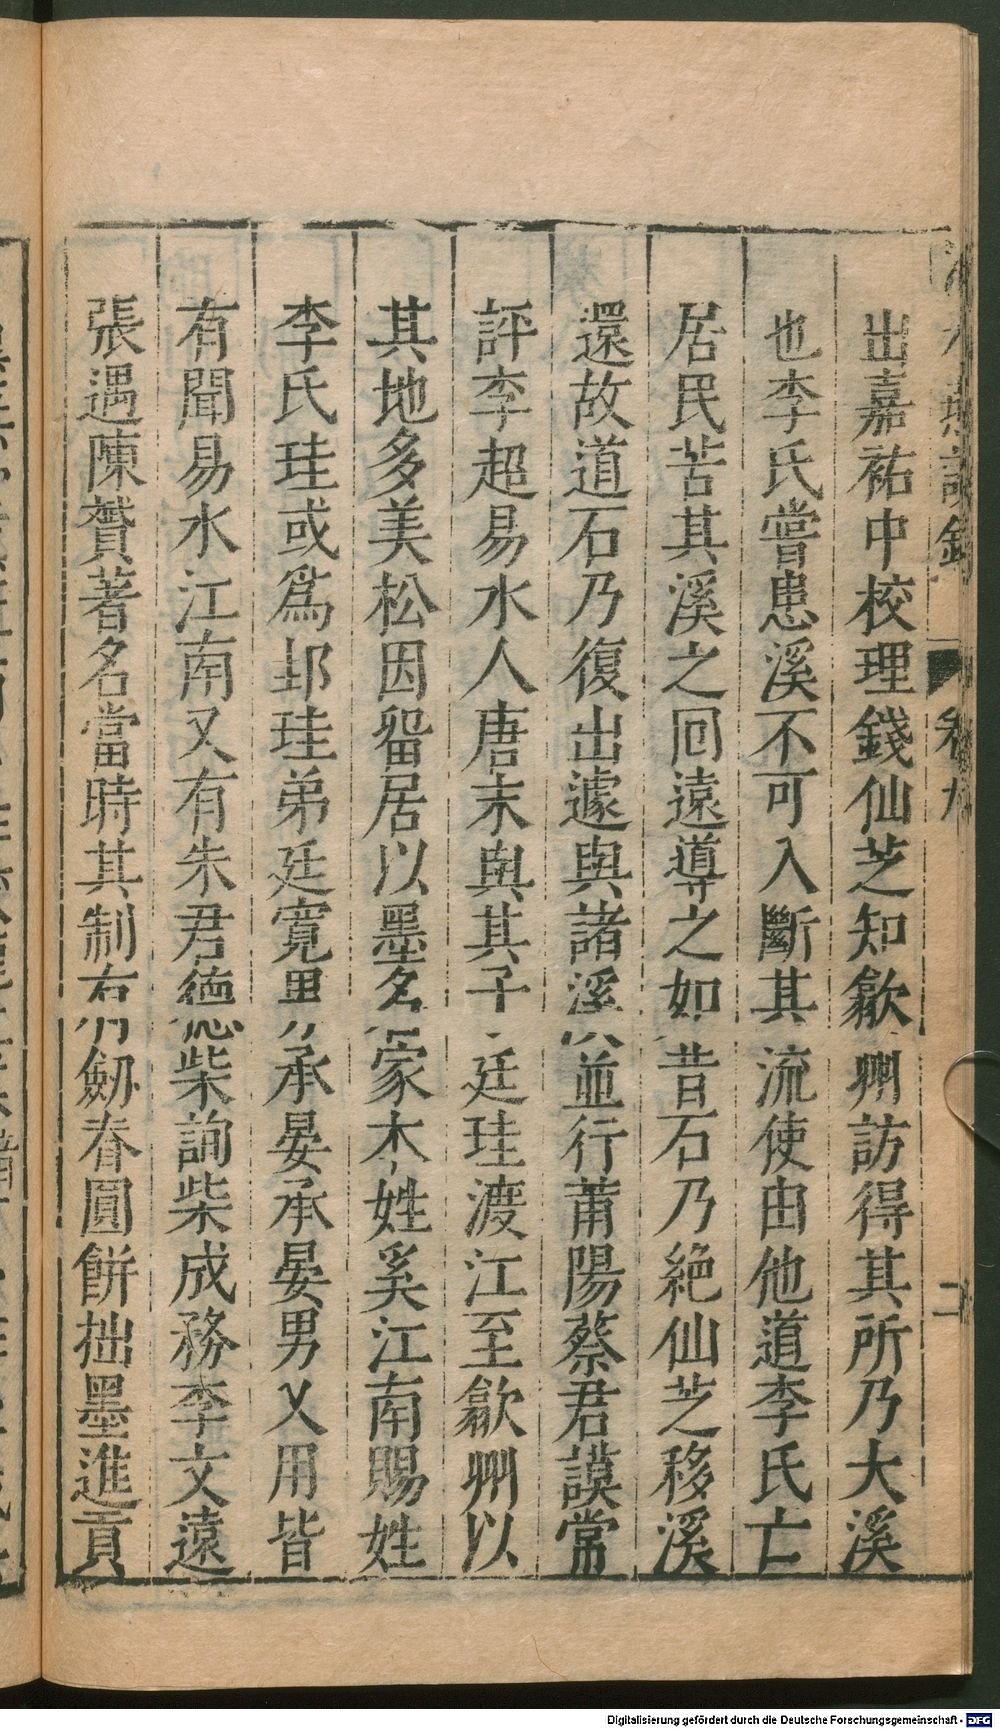 出嘉祐中校理錢仙芝知歙州訪得其所乃大溪
也李氏嘗患溪不可入斷其流使由他道李氏亡
居民苦其溪之回遠導之如昔石乃絶仙芝移溪
還故道石乃復出遽與諸溪並行莆陽蔡君謨常
評李超易水人唐末與其子廷珪渡江至歙州以
其地多美松因留居以墨名家本姓奚江南賜姓
李氏珪或爲邽珪弟廷寛男承晏承晏男文用皆
有聞易水江南又有朱君德柴詢柴成務李文遠
張遇陳贇著名當時其制有劒脊圓餅拙墨進貢
卷九
二
Digitalisierung gefördert durch die Deutsche Forschungsgemeinschaft - DFG